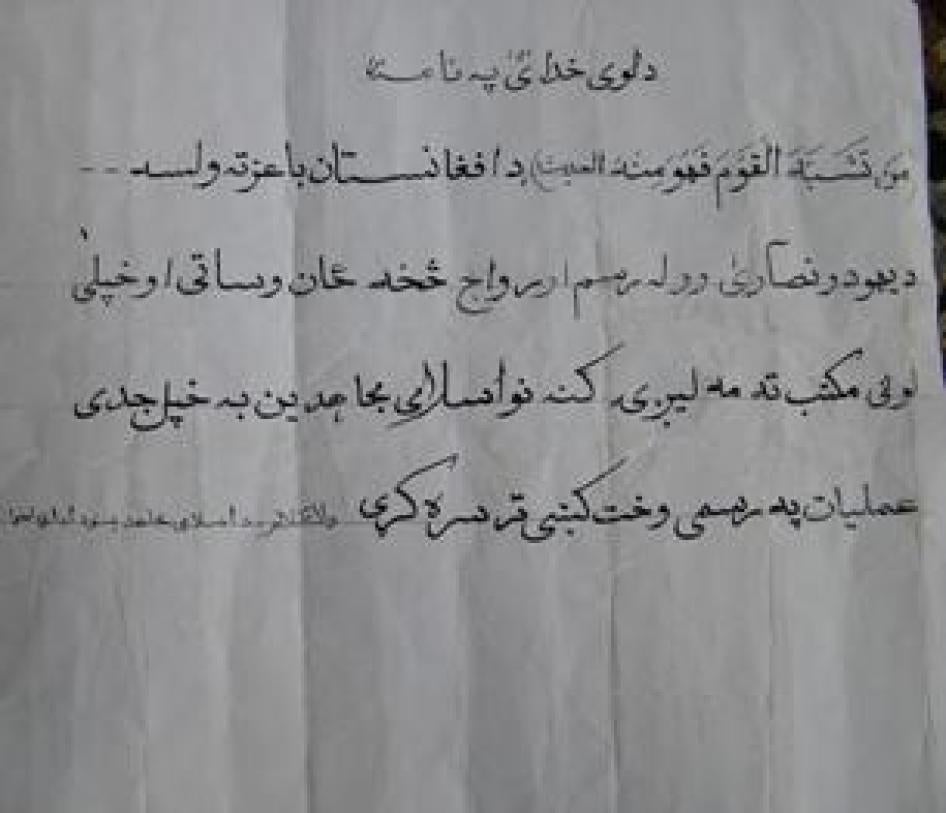 د لوی خدای په نامه
(مَن تَشَبَّهَ القَوَمَ فَهُوَ مِنهُ الحدیث) د افغانستان باعزته ولسه --
د یهود و نصاریٰ ووله رسم او رواج څخه ځان وساتی او خپلی
لونی مکتب ته مه لیږی. کنه نو اسلامی مجاهدین به خپل جدی
عملیات په رسمی وخت کښی تر سره کړی